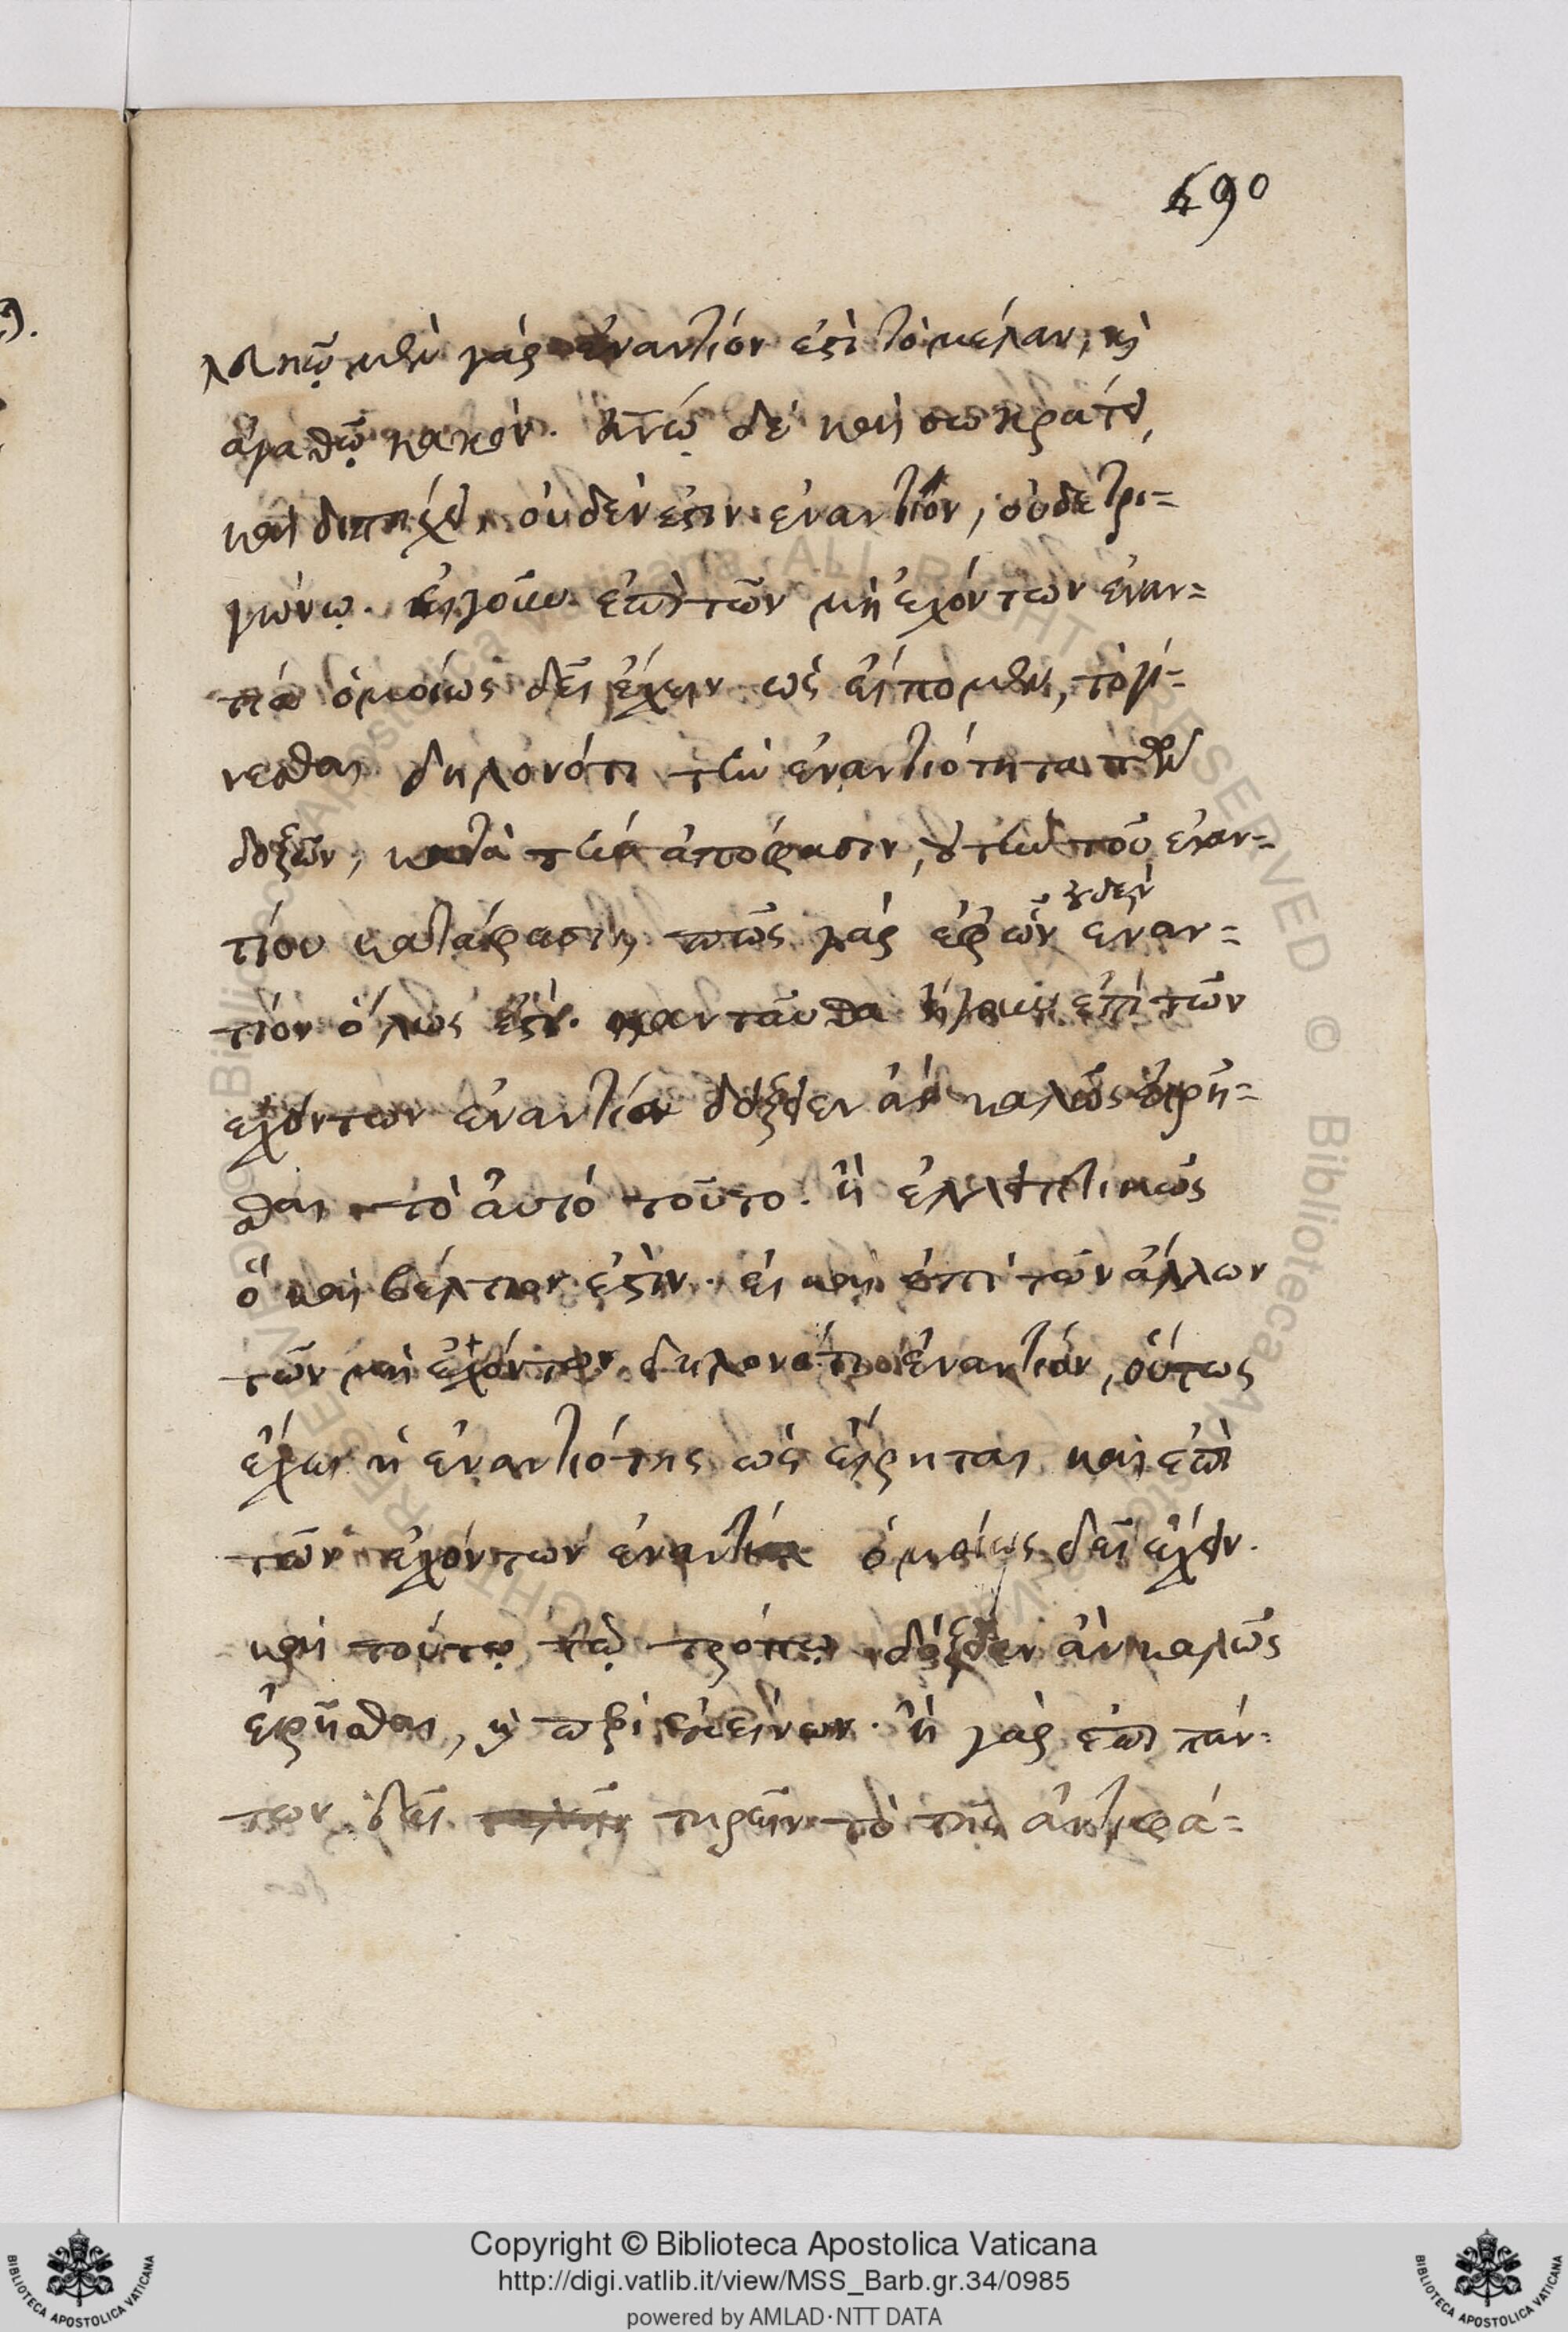 490
λευκῷ μὲν γὰρ ἐναντίον ἐστὶ τὸ μέλαν, καὶ
ἀγαθῷ κακόν. ἀνῷ δὲ καὶ σωκράτει,
καὶ διπήχει, οὐδέν ἐστιν ἐναντίον, οὐδὲ τρι=
γώνῳ. εἰ γοῦν ἐπὶ τῶν μὴ ἐχόντων ἐναν=
τία ὁμοίως δεῖ ἔχειν ὡς εἴπομεν, τὸ γί=
νεσθαι δηλονότι τὴν ἐναντιότητα τῶν
δοξῶν, κατὰ τὴν ἀπόφασιν, οὐ τὴν τοῦ ἐναν=
τίου κατάφασιν, πῶς γὰρ ἐφ' ὧν οὐδὲν ἐναν=
τίον ὅλως ἐστίν. κανταῦθα ἤγουν ἐπὶ τῶν
ἐχόντων ἐναντία δόξειεν ἂν καλῶς εἰρῆ=
σθαι τὸ αὐτὸ τοῦτο. ἢ ἐλλειπτικῶς
ὃ καὶ βέλτιον ἐστίν. εἰ καὶ ἐπὶ τῶν ἄλλων
τῶν μὴ ἐχόντων δηλονότι ἐναντίον, οὕτως
ἔχει ἡ ἐναντιότης ὡς εἴρηται καὶ ἐπὶ
τῶν ἐχόντων ἐναντία ὁμοίως δεῖ ἔχειν.
καὶ τούτῳ τῷ τρόπῳ δόξειεν ἂν καλῶς
εἰρῆσθαι, καὶ περὶ ἐκείνων. ἢ γὰρ ἐπὶ πάν=
των δεῖ τηρεῖν τὸ τῆς ἀντιφά=
Copyright © Biblioteca Apostolica Vaticana
http://digi.vatlib.it/view/MSS_Barb.gr.34/0985
powered by AMLAD·NTT DATA
BIBLIOTECA APOSTOLICA VATICANA
BIBLIOTECA APOSTOLICA VATICANA